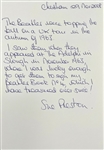 The Beatles were topping the
bill on a UK tour in the
autumn of 1963.
I saw them when they
appeared at the Adelphi in
Slough in November 1963,
where I was lucky enough
to get them to sign my
Beatles Book (No 1) which I
have treasured ever since.
Sue Preston.